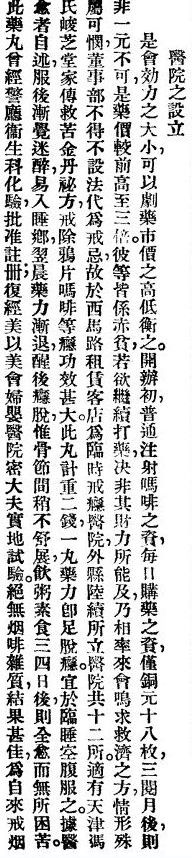 醫院之設立
是會効力之大小、可以劇藥市價之高低衡之。開辦初普通注射嗎啡之資、每日購藥之資、僅銅元十八枚、三閱月後則
非一元不可、是藥價較前高至三倍。彼等皆係赤貧、若欲繼續打藥、決非其財力所能及、乃相率來會鳴求救濟之方、情形殊
屬可憫、董事部不得不設法代為戒忌、故於西馬路租賃客店、為臨時戒癮醫院、外縣陸續所立醫院、共十二所、適有天津馮
氏峻芝堂家傳救苦金丹祕方、戒除鴉片嗎啡等癮、功效甚大。此丸計重二錢、一丸藥力卽足脫癮。宜於臨睡空腹服之。據醫
愈者自述、服後漸覺迷醉、易入睡鄉、翌晨藥力漸退、醒後癮脫、惟骨節間稍不舒展、飲粥素食三四日後、則全愈而無所困苦。
此藥丸曾經警廳衞生科化驗、批准註册、復經美以美會婦嬰醫院密大夫實地試驗、絕無烟啡雜質、結果甚佳、為自來戒烟